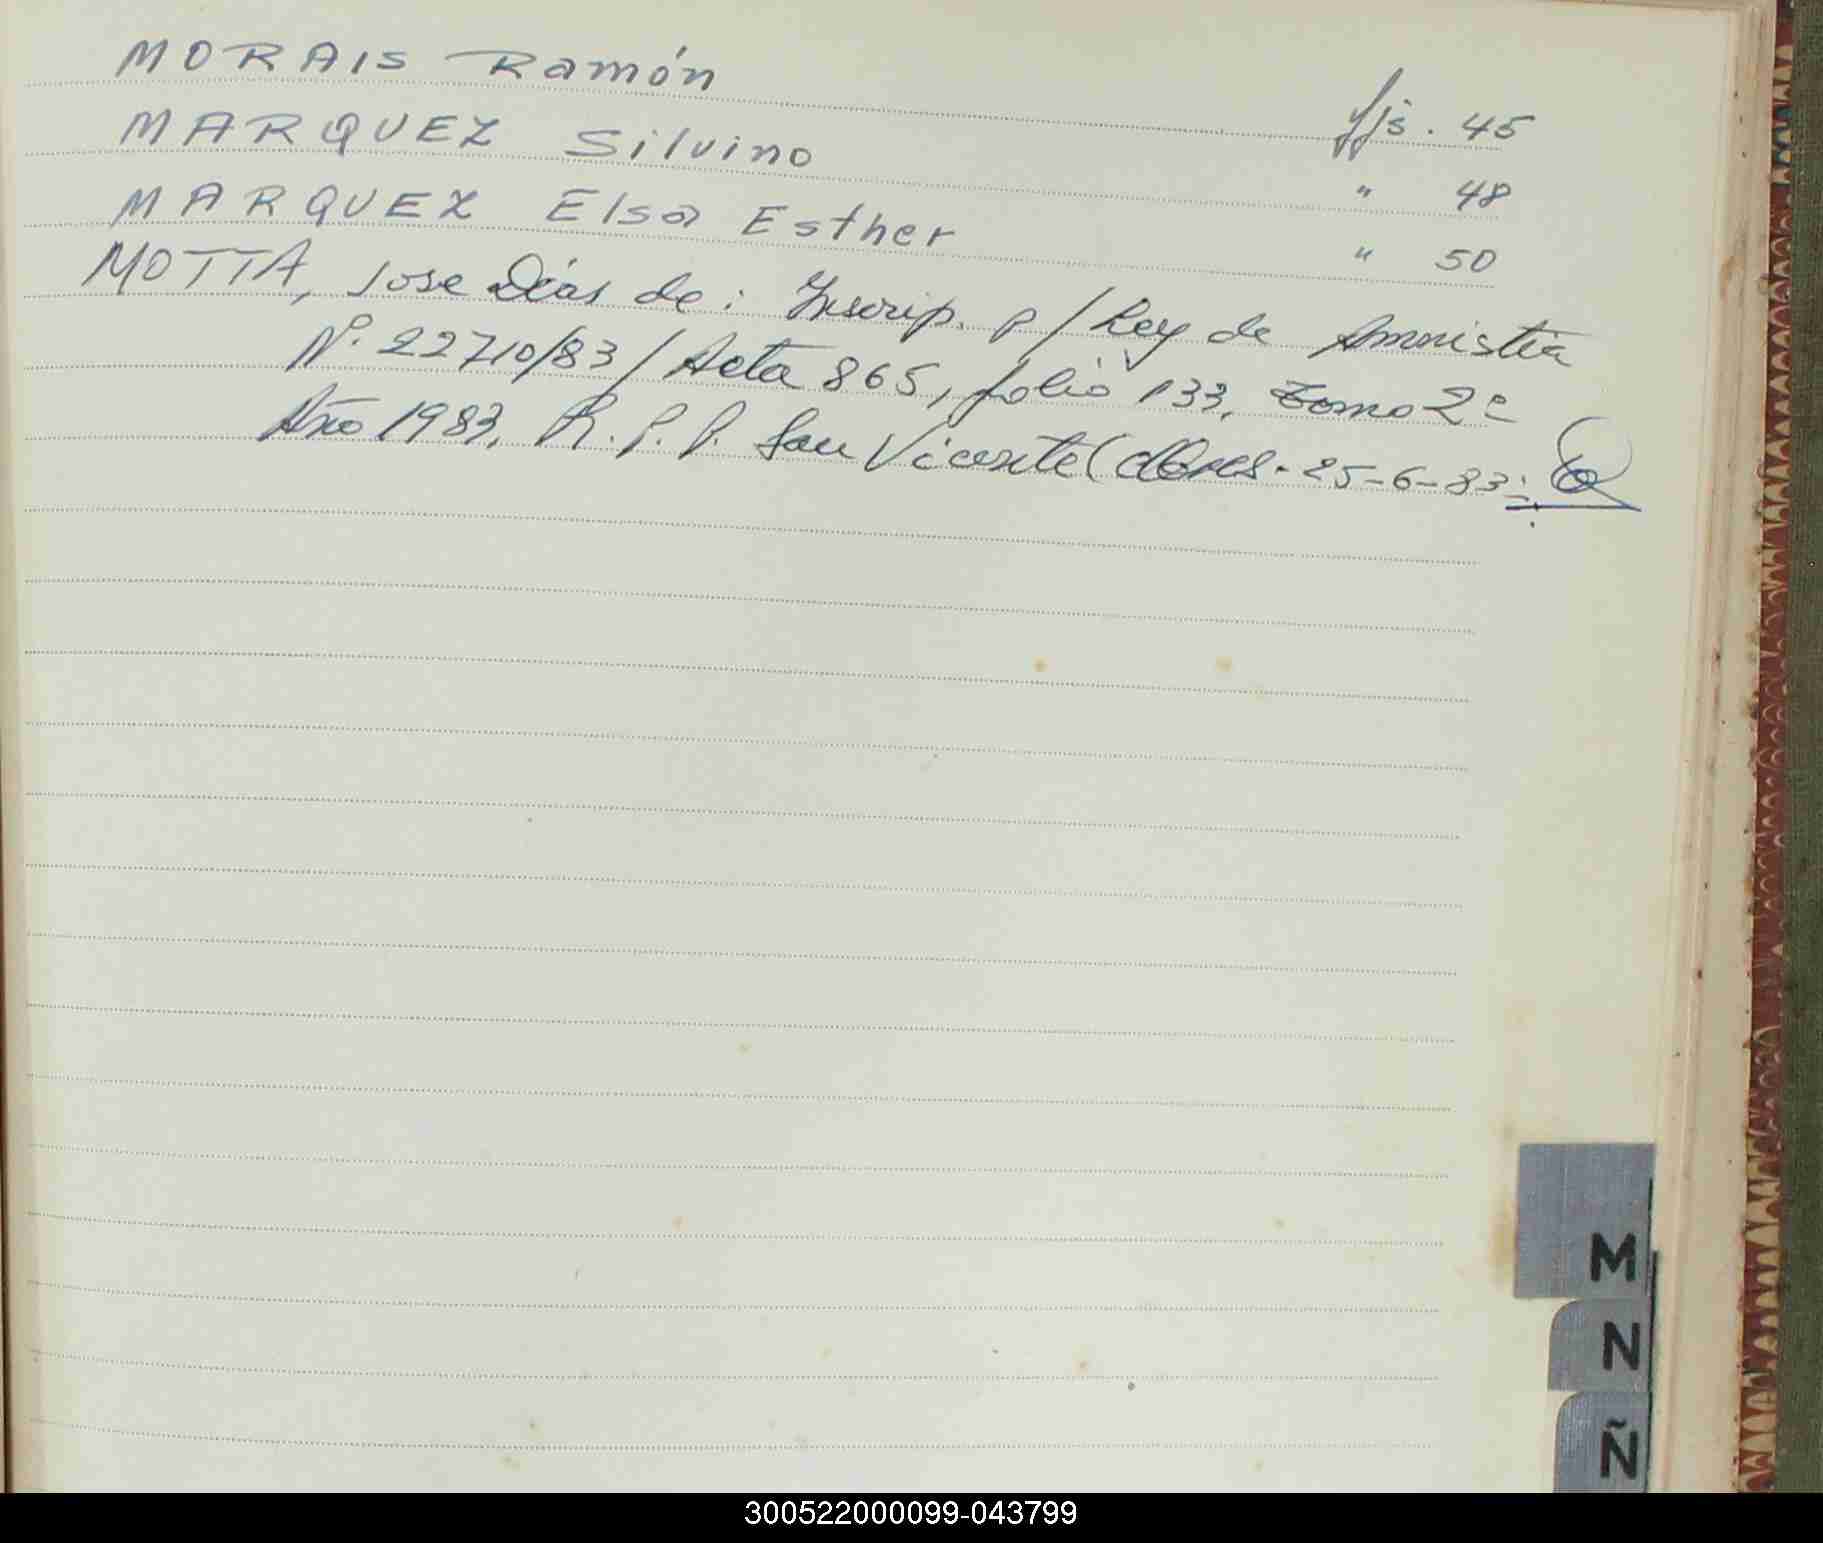 MORAIS Ramón fjs. 45
MARQUEZ Silvino " 48
MARQUEZ Elsa Esther " 50
MOTTA, Jose Días de: Inscrip. p/Ley de Amnistia
Nº. 22710/83/Acta 865, folio 133, Tomo 2º
Año 1983, R.P.P. San Vicente 25-6-83
M
N
Ñ
300522000099-043799